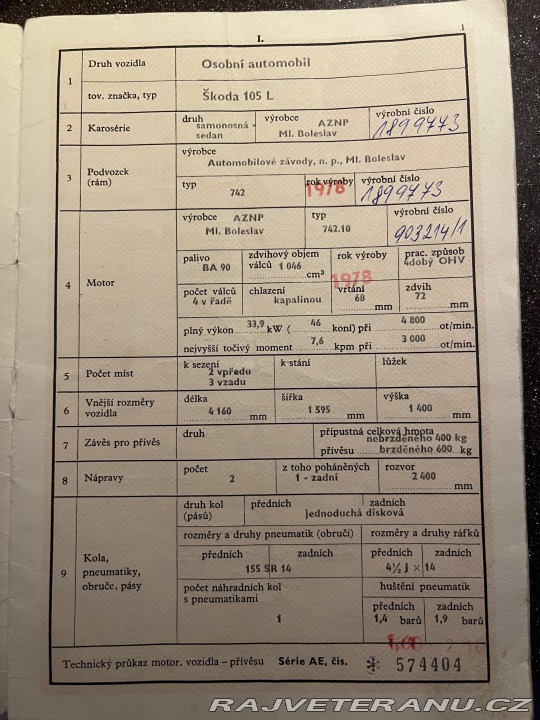 1
I.
1 Druh vozidla Osobní automobil
tov. značka, typ Škoda 105 L
2 Karosérie druh samonosná - sedan výrobce AZNP Ml. Boleslav výrobní číslo 1899773
3 Podvozek (rám) výrobce Automobilové závody, n. p., Ml. Boleslav
typ 742 rok výroby 1978 výrobní číslo 1899773
4 Motor výrobce AZNP Ml. Boleslav typ 742.10 výrobní číslo 903214/1
palivo BA 90 zdvihový objem válců 1 046 cm³ rok výroby 1978 prac. způsob 4dobý OHV
počet válců 4 v řadě chlazení kapalinou vrtání 68 mm zdvih 72 mm
plný výkon 33,9 kW ( 46 koní) při 4 800 ot/min.
nejvyšší točivý moment 7,6 kpm při 3 000 ot/min.
5 Počet míst k sezení 2 vpředu 3 vzadu k stání lůžek
6 Vnější rozměry vozidla délka 4 160 mm šířka 1 595 mm výška 1 400 mm
7 Závěs pro přívěs druh přípustná celková hmota nebrzděného 400 kg
přívěsu brzděného 600 kg
8 Nápravy počet 2 z toho poháněných 1 - zadní rozvor 2 400 mm
9 Kola, pneumatiky, obruče, pásy druh kol (pásů) předních zadních
jednoduchá disková
rozměry a druhy pneumatik (obručí) rozměry a druhy ráfků
předních zadních předních zadních
155 SR 14 4½ J × 14
počet náhradních kol s pneumatikami 1 huštění pneumatik
předních zadních
1,4 barů 1,9 barů
Technický průkaz motor. vozidla – přívěsu Série AE, čís. 574404
RAJVETERANU.CZ